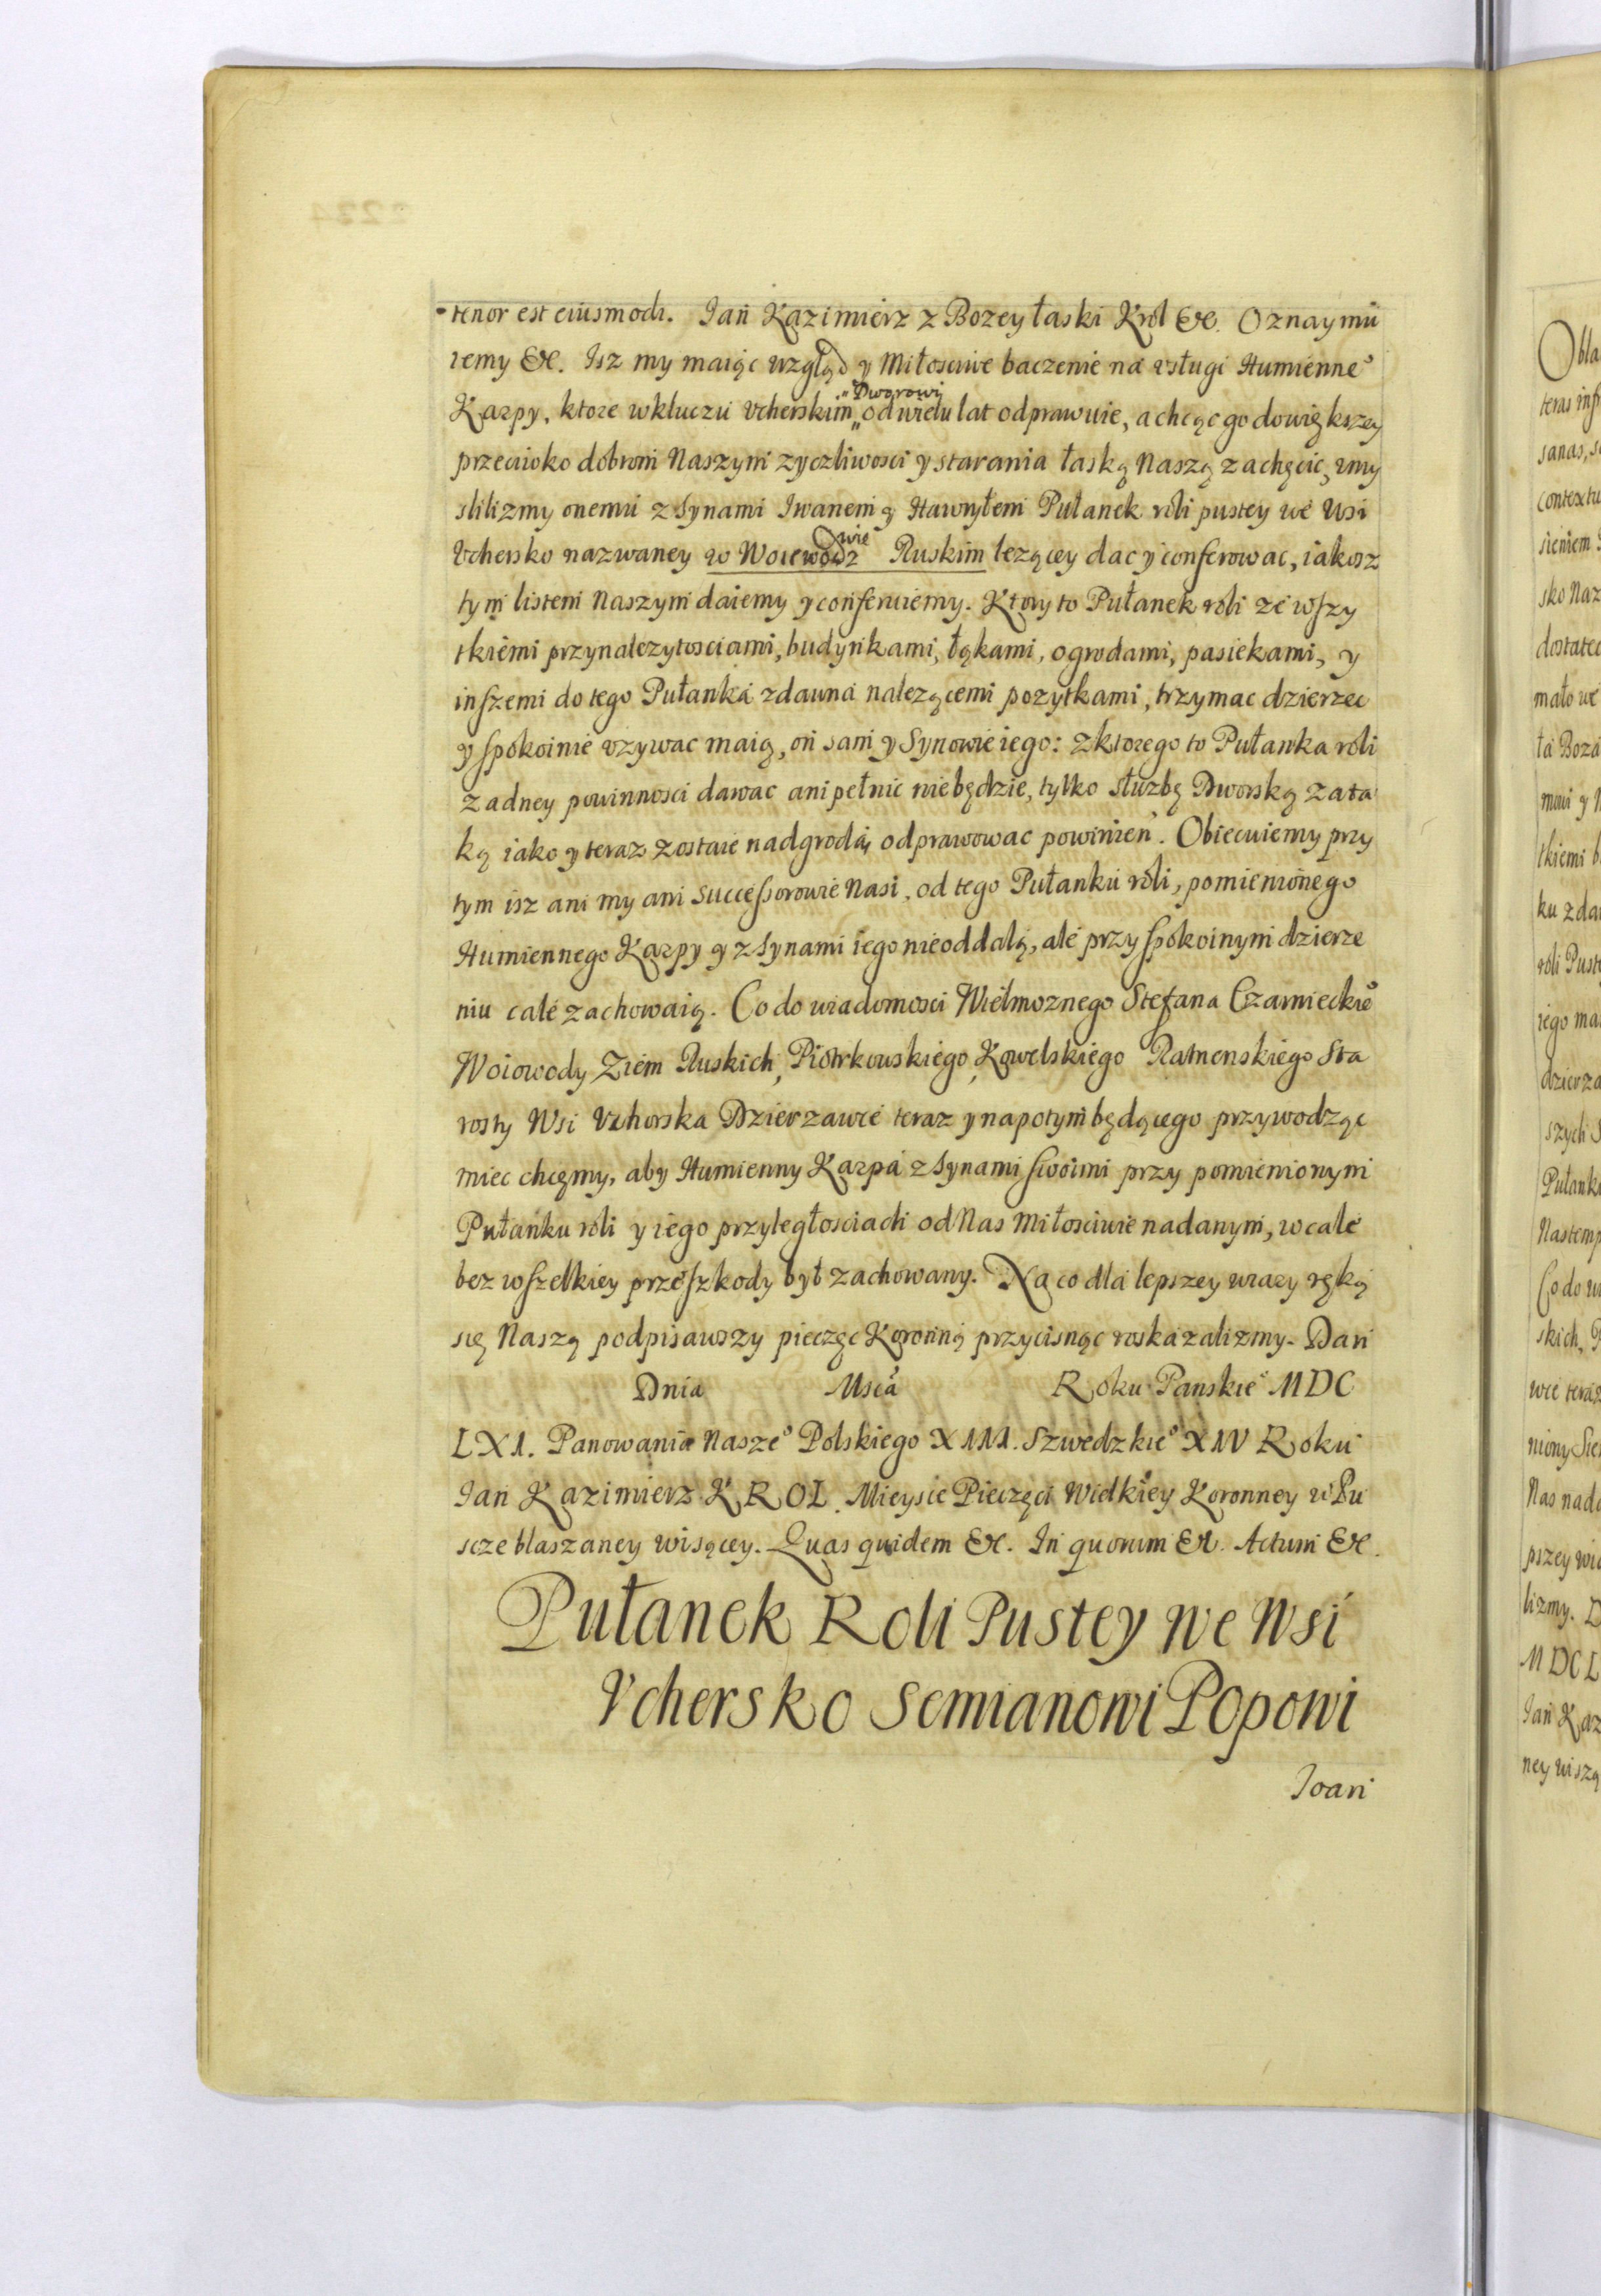 tenor est eiusmodi. Jan Kazimierz z Bozey łaski Krol &c. Oznaymu
iemy &c. Isz my maiąc wzgląd y Miłosciwe baczenie na vsługi Humienne°
Karpy, ktore wkluczu Vcherskim „Dworowi„ od wielu lat odprawuie, a chcąc go do większey
przeciwko dobrom Naszym zyczliwosci y starania łaską Naszą zachęcic, vmy
slilizmy onemu z Synami Iwanem y Hawryłem Pułanek roli pustey we Wsi
Vchersko nazwaney w Woiewodztwie Ruskim lezącey dac y conferowac, iakosz
tym listem Naszym daiemy y conferuiemy. Ktory to Pułanek roli ze wszy
tkiemi przynalezytosciami, budynkami, łąkami, ogrodami, pasiekami, y
inszemi do tego Pułanka zdawna nalezącemi pozytkami, trzymac dzierzec
y spokoinie vzywac maią, on sam y Synowie iego: z ktorego to Pułanka roli
zadney powinnosci dawac ani pełnic niebędzie, tylko słuzbę Dworską za ta
ką iako y teraz zostaie nadgrodą, odprawowac powinien. Obiecuiemy przy
tym isz ani my ani Successorowie Nasi, od tego Pułanku roli, pomienionego
Humiennego Karpy y z Synami iego nieoddalą, ale przy spokoinym dzierze
niu cale zachowaią. Co do wiadomosci Wielmoznego Stefana Czarnieckie°
Woiowody Ziem Ruskich, Piotrkowskiego, Kowelskiego Ratnenskiego Sta
rosty Wsi Vcherska Dzierzawce teraz y napotym będącego przywodząc
miec chcemy, aby Humienny Karpa z Synami swoimi przy pomienionym
Pułanku roli y iego przyległosciach od Nas Miłosciwie nadanym, wcale
bez wszelkiey przeszkody był zachowany. Na co dla lepszey wiary ręką
się Naszą podpisawszy pieczęc Koronną przycisnąc roskazalizmy. Dan
Dnia Msca Roku Panskie° MDC
LXI. Panowania Nasze° Polskiego XIII. Szwedzkie° XIV Roku
Jan Kazimierz KROL. Mieysce Pieczęci Wielkiey Koronney w Pu
scze blaszaney wisącey. Quas quidem &c. In quorum &c. Actum &c.
Pułanek Roli Pustey we Wsi
Vchersko Semianowi Popowi
Joan